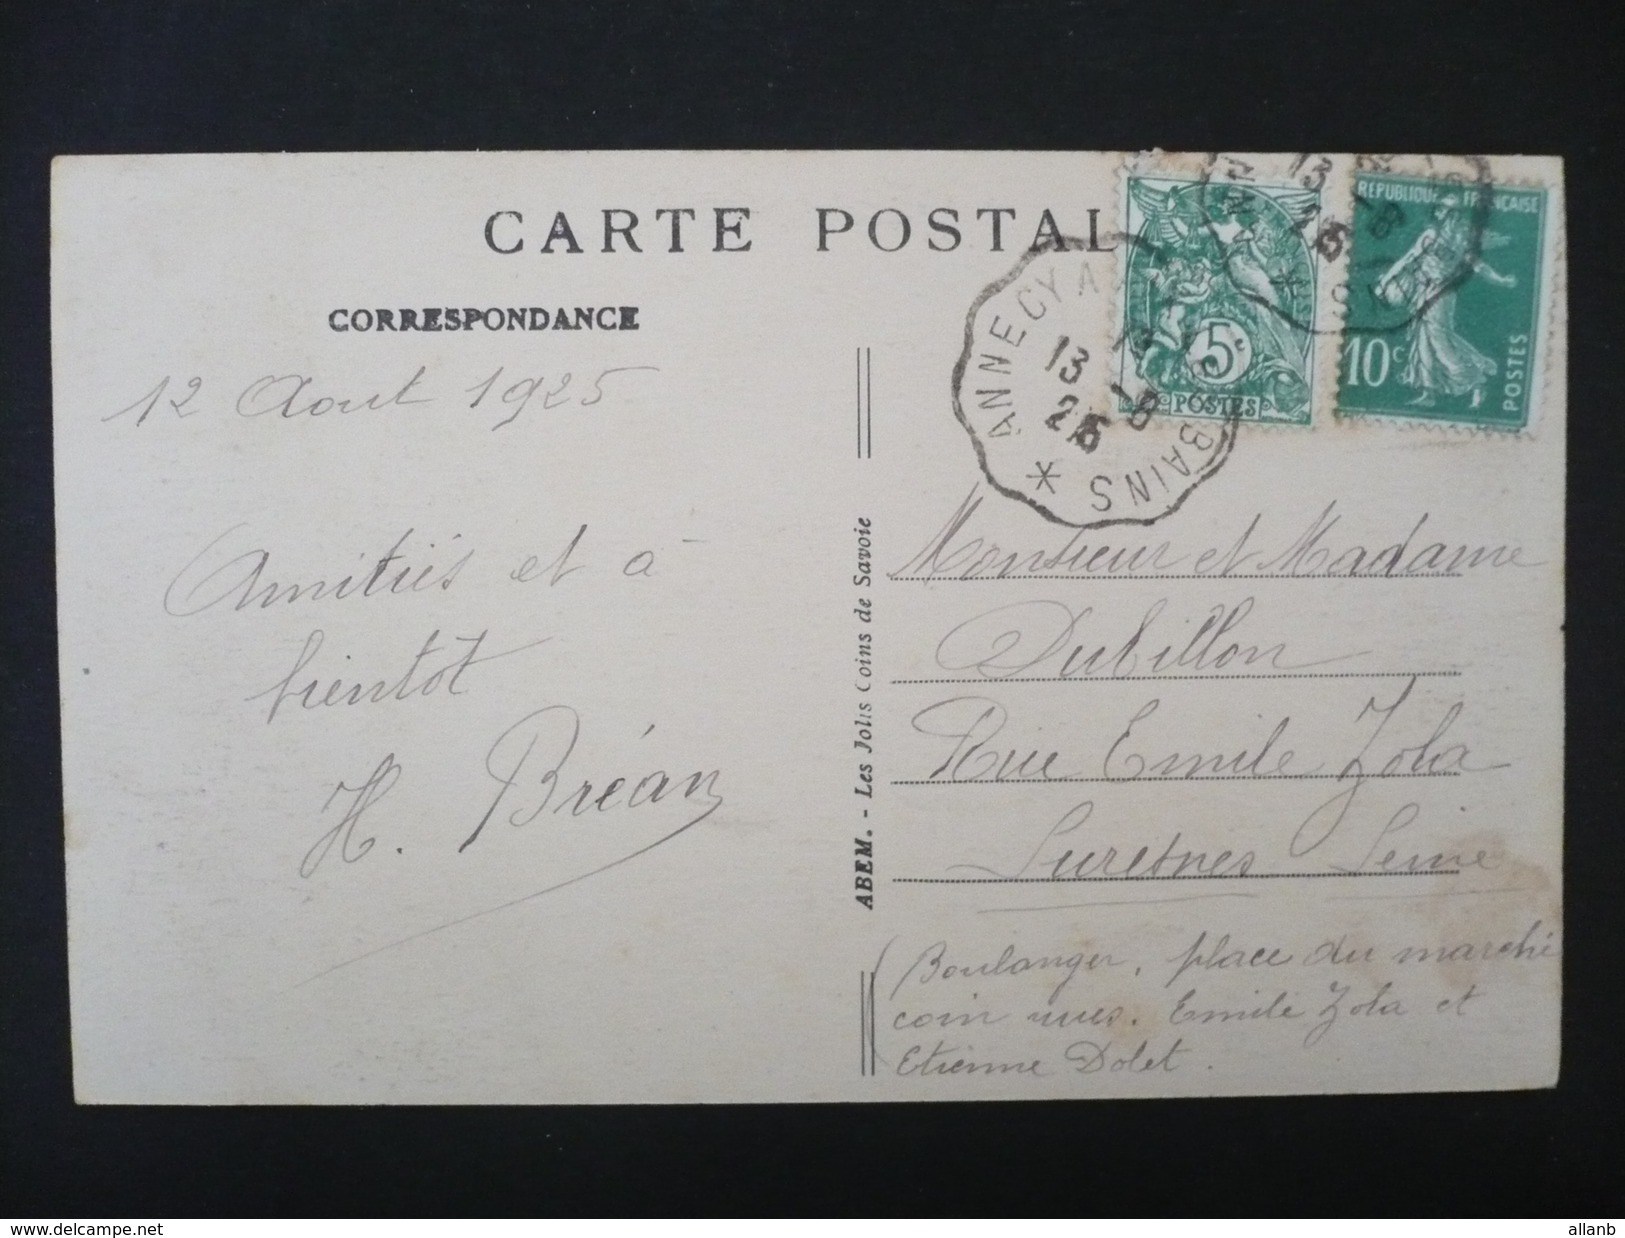 CARTE POSTAL
CORRESPONDANCE
12 Aout 1925
Amitiés et à
bientot
H. Bréan
ABEM. - Les Jolis Coins de Savoie
ANNECY A
BAINS
13 -8
25
5c
POSTES
13 -8
25
BAINS
REPUBLIQUE FRANÇAISE
10c
POSTES
Monsieur et Madame
Dubillon
Rue Emile Zola
Suresnes Seine
(Boulanger, place du marché
coin rues. Emile Zola et
Etienne Dolet.
delcampe.net
allanb